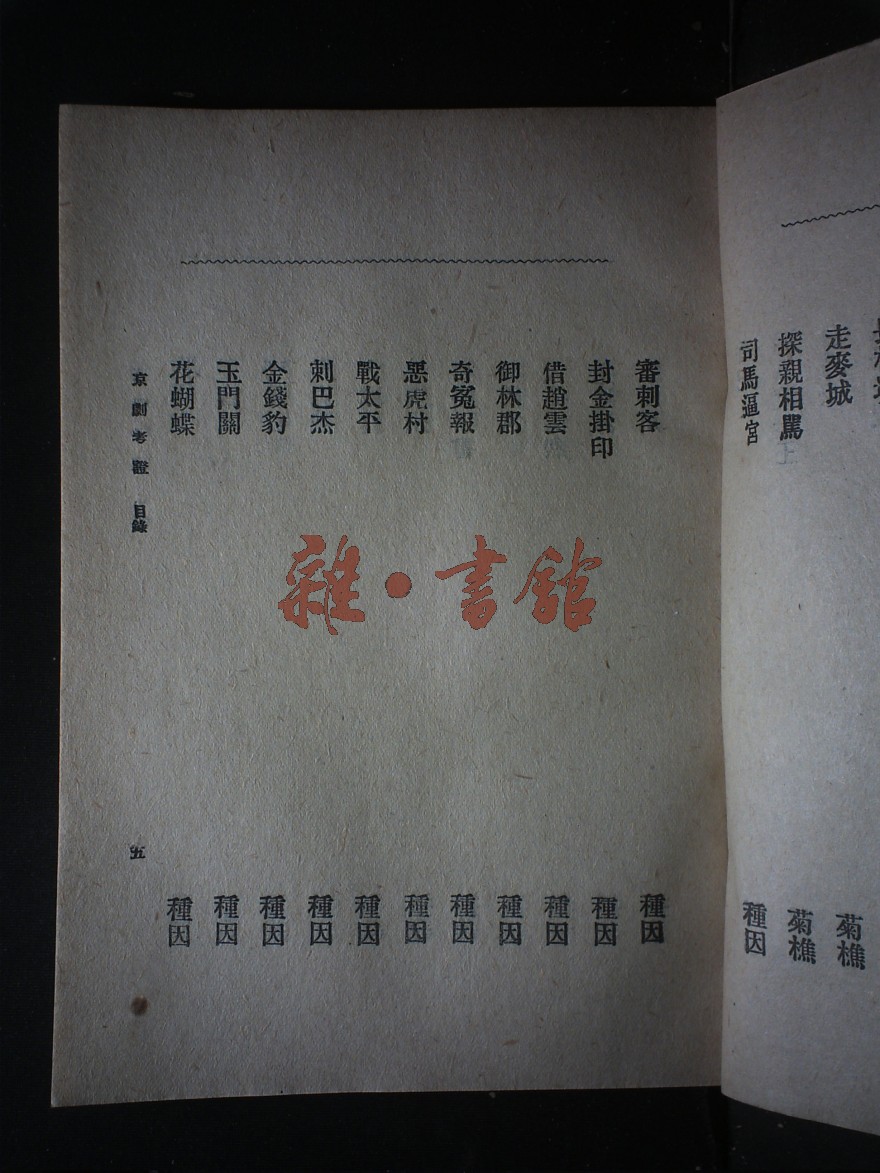 走麥城
菊樵
探親相罵
菊樵
司馬逼宮
種因
審刺客
種因
封金掛印
種因
借趙雲
種因
御林郡
種因
奇冤報
種因
惡虎村
種因
戰太平
種因
刺巴杰
種因
金錢豹
種因
玉門關
種因
花蝴蝶
種因
京劇考證 目錄
五
雜·書館